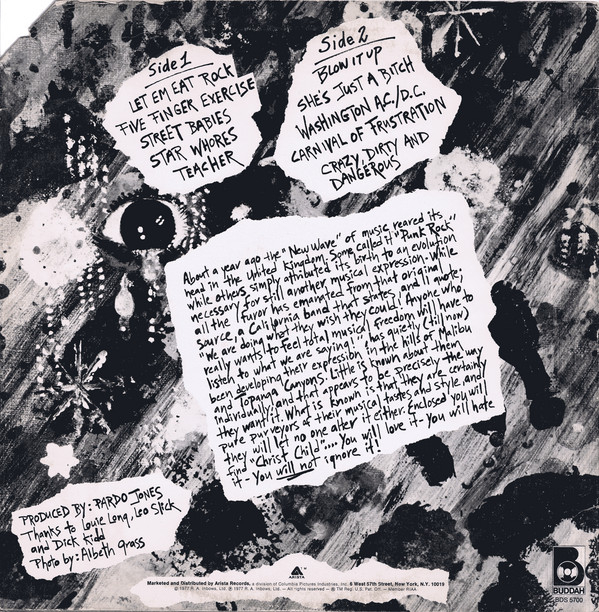 Side 1
LET EM EAT ROCK
FIVE FINGER EXERCISE
STREET BABIES
STAR WHORES
TEACHER
Side 2
BLOW IT UP
SHE'S JUST A BITCH
WASHINGTON A.C./D.C.
CARNIVAL OF FRUSTRATION
CRAZY, DIRTY AND
DANGEROUS
About a year ago the "New Wave" of music reared its
head in the United Kingdom. Some called it "Punk Rock"
while others simply attributed its birth to an evolution
necessary for still another musical expression. While
all the furor has emanated from that original
source, a California band that states, and I quote;
"We are doing what they wish they could! Anyone who
really wants to feel total musical freedom will have to
listen to what we are saying!", has quietly (till now)
been developing their expression in the hills of Malibu
and Topanga Canyons. Little is known about them
individually and that appears to be precisely the way
they want it. What is known is that they are certainly
pure purveyors of their musical tastes and style and
they will let no one alter it either. Enclosed you will
find "Christ Child".... You will love it - you will hate
it - You will not ignore it!
PRODUCED BY: PARDO JONES
Thanks to Louie Long, Leo Slick
and Dick Kidd
Photo by: Albeth Grass
ARISTA
Marketed and Distributed by Arista Records, a division of Columbia Pictures Industries, Inc. 6 West 57th Street, New York, N.Y. 10019
© 1977 R. A. Inbows, Ltd. ℗ 1977 R. A. Inbows, Ltd. — All rights reserved — ® TM Reg. U.S. Pat. Off. — Member RIAA
BUDDAH
BDS 5700